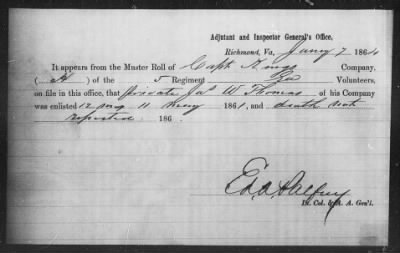 Adjutant and Inspector General's Office,
Richmond, Va, Jany 7 1864
It appears from the Muster Roll of Capt Kings Company,
( ) of the 5 Regiment Ga Volunteers,
on file in this office, that Private Jas W Thomas of his Company
was enlisted 12 mo 11 May 1861, and death not
reported 186 .
Lt. Col. & A. A. Gen'l.